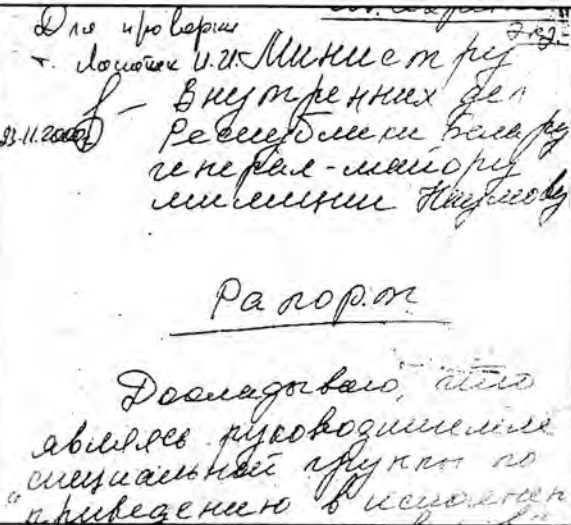 Экз.
Для проверки
т. Лопатик И.И. Министру
Внутренних дел
23.11.2000
Республики Белару
генерал-майору
милиции Наумову
Рапорт
Докладываю, что
являясь руководителем
специальной группы по
приведению в исполнен